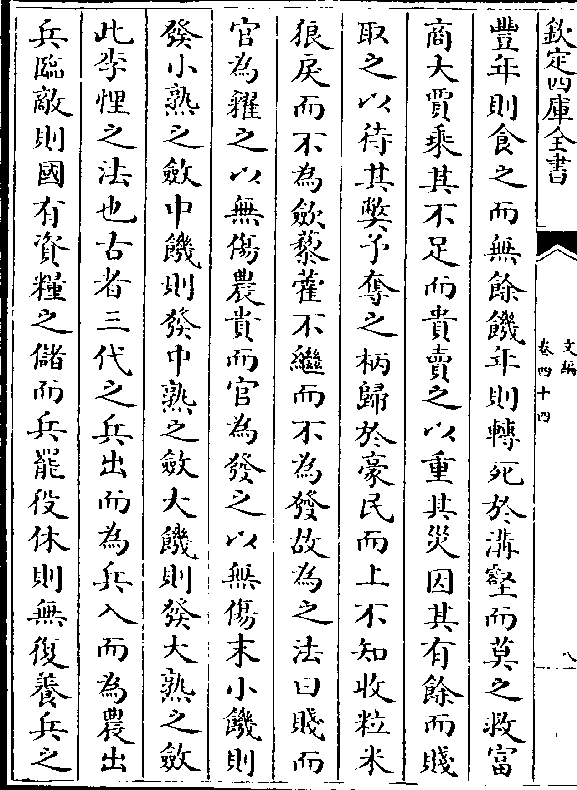 欽定四庫全書
文編
卷四十四
八
豐年則食之而無餘饑年則轉死於溝壑而莫之救富
商大賈乘其不足而貴賣之以重其災因其有餘而賤
取之以待其弊予奪之柄歸於豪民而上不知收粒米
狼戾而不為斂藜藿不繼而不為發故為之法曰賤而
官為糴之以無傷農貴而官為發之以無傷末小饑則
發小熟之斂中饑則發中熟之斂大饑則發大熟之斂
此李悝之法也古者三代之兵出而為兵入而為農出
兵臨敵則國有資糧之儲而兵罷役休則無復養兵之